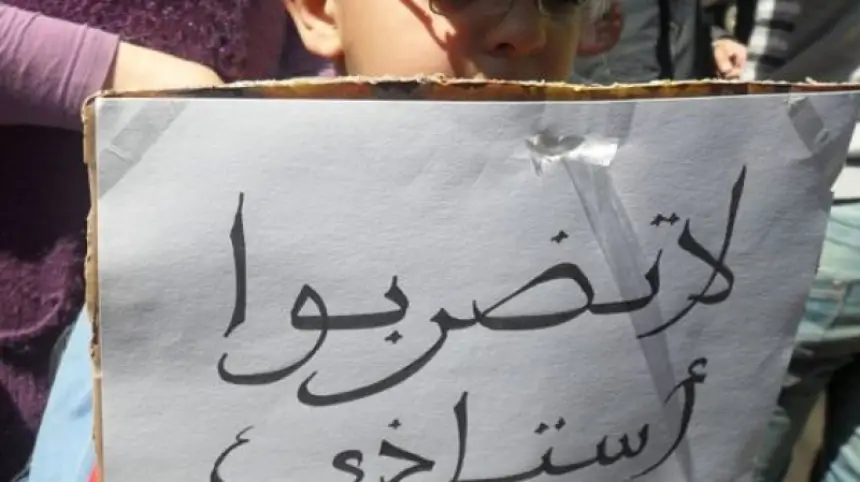 لا تضربوا
أستاذي